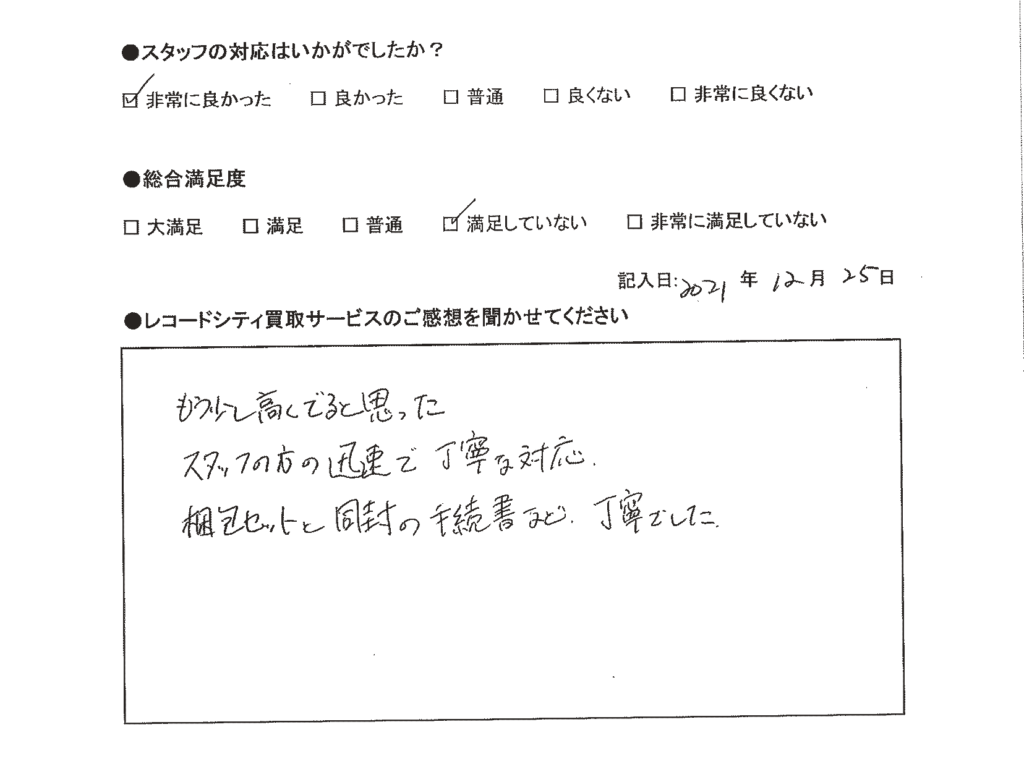 ●スタッフの対応はいかがでしたか？
☑ 非常に良かった □ 良かった □ 普通 □ 良くない □ 非常に良くない
●総合満足度
□ 大満足 □ 満足 □ 普通 ☑ 満足していない □ 非常に満足していない
記入日:2021 年 12 月 25 日
●レコードシティ買取サービスのご感想を聞かせてください
もう少し高くでると思った
スタッフの方の迅速で丁寧な対応.
梱包セットと同封の手続書など、丁寧でした.